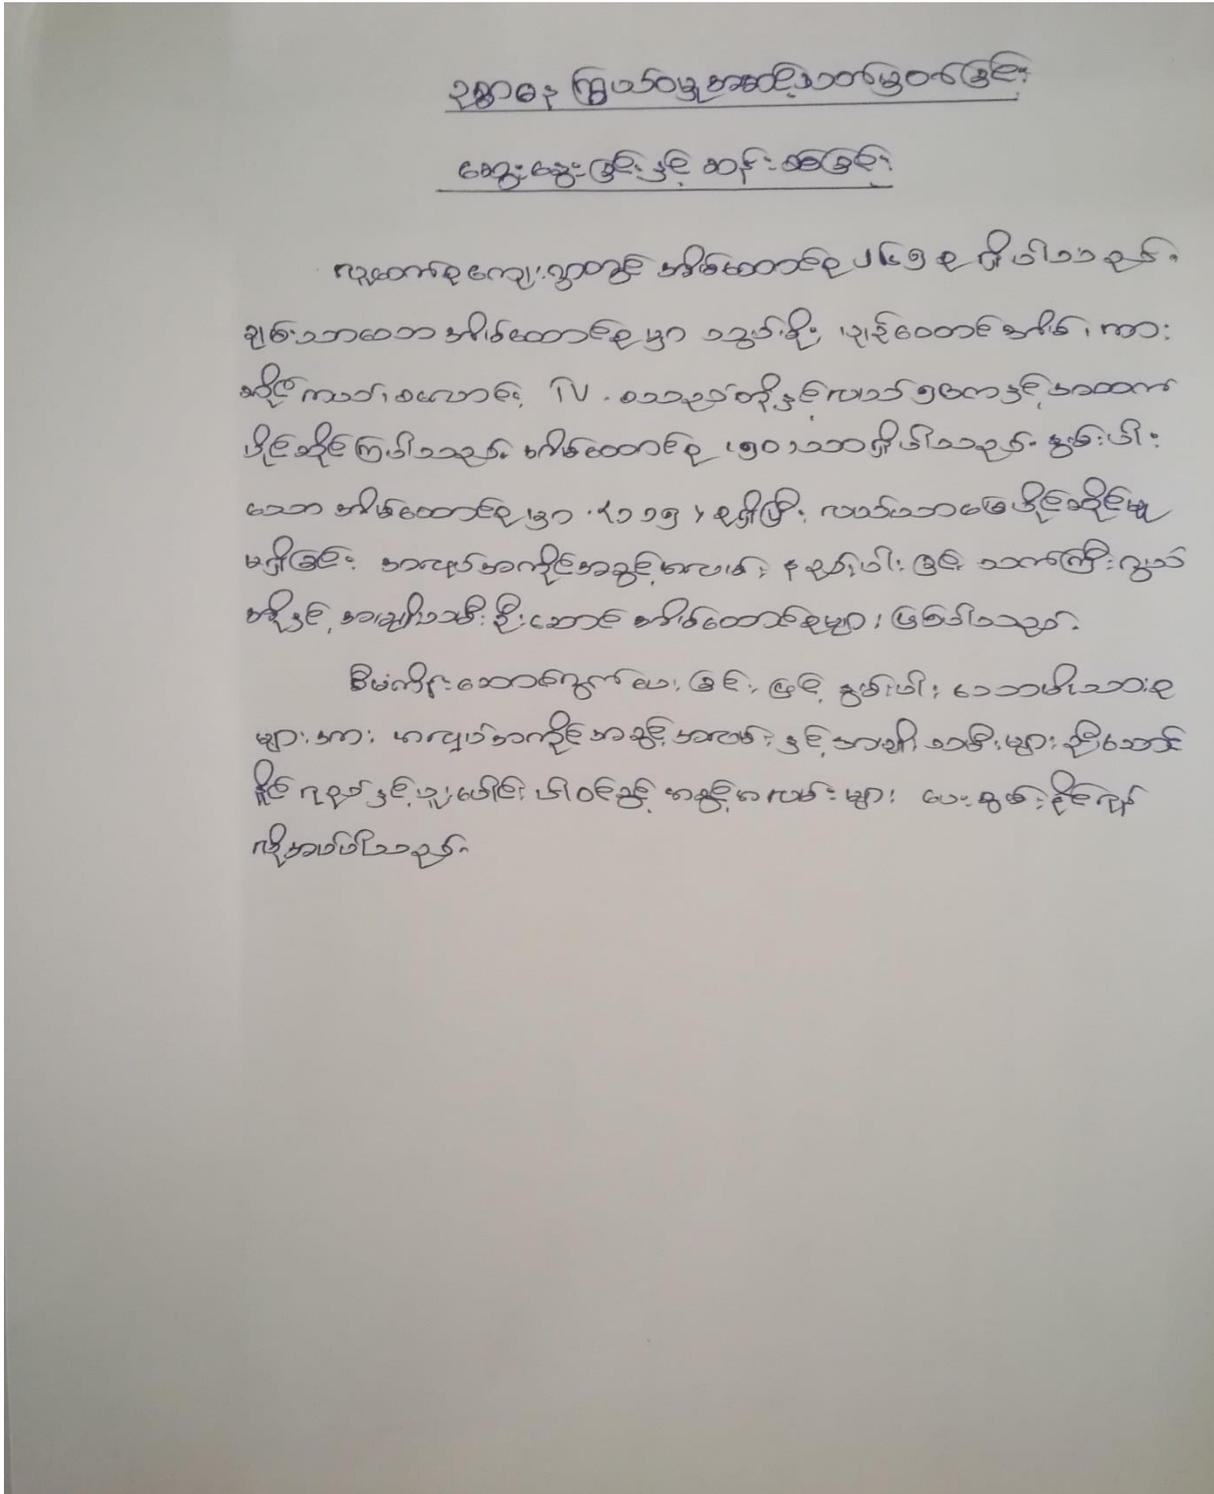 ဥစ္စာဓန ကြွယ်ဝမှုအဆင့်သတ်မှတ်ခြင်း
ဆွေးနွေးခြင်းနှင့် ဆန်းစစ်ခြင်း
ကျေးရွာတွင် အိမ်ထောင်စု ၂၆၅ စု ရှိပါသည်။
ချမ်းသာသော အိမ်ထောင်စုမှာ သွပ်မိုး, ပျဉ်ထောင်အိမ်၊ ကား
ဆိုင်ကယ်၊ စလောင်း, TV . စသည်တို့နှင့်လယ် ၅ ဧကနှင့်အထက်
ပိုင်ဆိုင်ကြပါသည်။ အိမ်ထောင်စု (၅၀) သာရှိပါသည်။ နွမ်းပါး
သော အိမ်ထောင်စုမှာ (၁၁၅) စုရှိပြီး လယ်ယာမြေပိုင်ဆိုင်မှု
မရှိခြင်း အလုပ်အကိုင်အခွင့်အလမ်း နည်းပါးခြင်း သက်ကြီးရွယ်
အိုနှင့် အမျိုးသမီးဦးဆောင် အိမ်ထောင်စုများ ဖြစ်ပါသည်။
စီမံကိန်းဆောင်ရွက်ပေးခြင်းဖြင့် နွမ်းပါးသောမိသားစု
များအား အလုပ်အကိုင်အခွင့်အလမ်းနှင့် အမျိုးသမီးများဦးဆောင်
နိုင်ရည်နှင့်ပူးပေါင်းပါဝင်ခွင့် အခွင့်အလမ်းများ ပေးစွမ်းနိုင်ရန်
လိုအပ်ပါသည်။